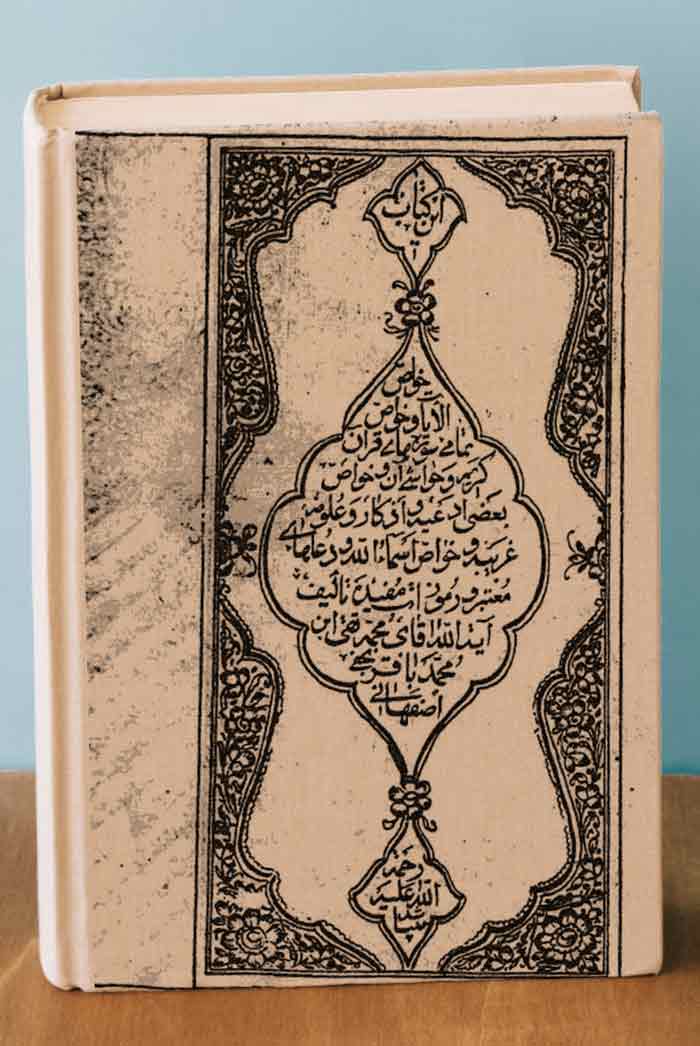 این کتاب
خواص
الآیات و خواص
تمامی سورہ های قرآن
کریم و خواتیم آن و خواص
بعضی ادعیه و اذکار و علوم
غریبه و خواص اسماء الله و دعاهای
معتبر و رموزات مفیده تألیف
آیة الله آقای محمد تقی ابن
محمد باقر نجفی
اصفهانی
رحمة
الله علیه